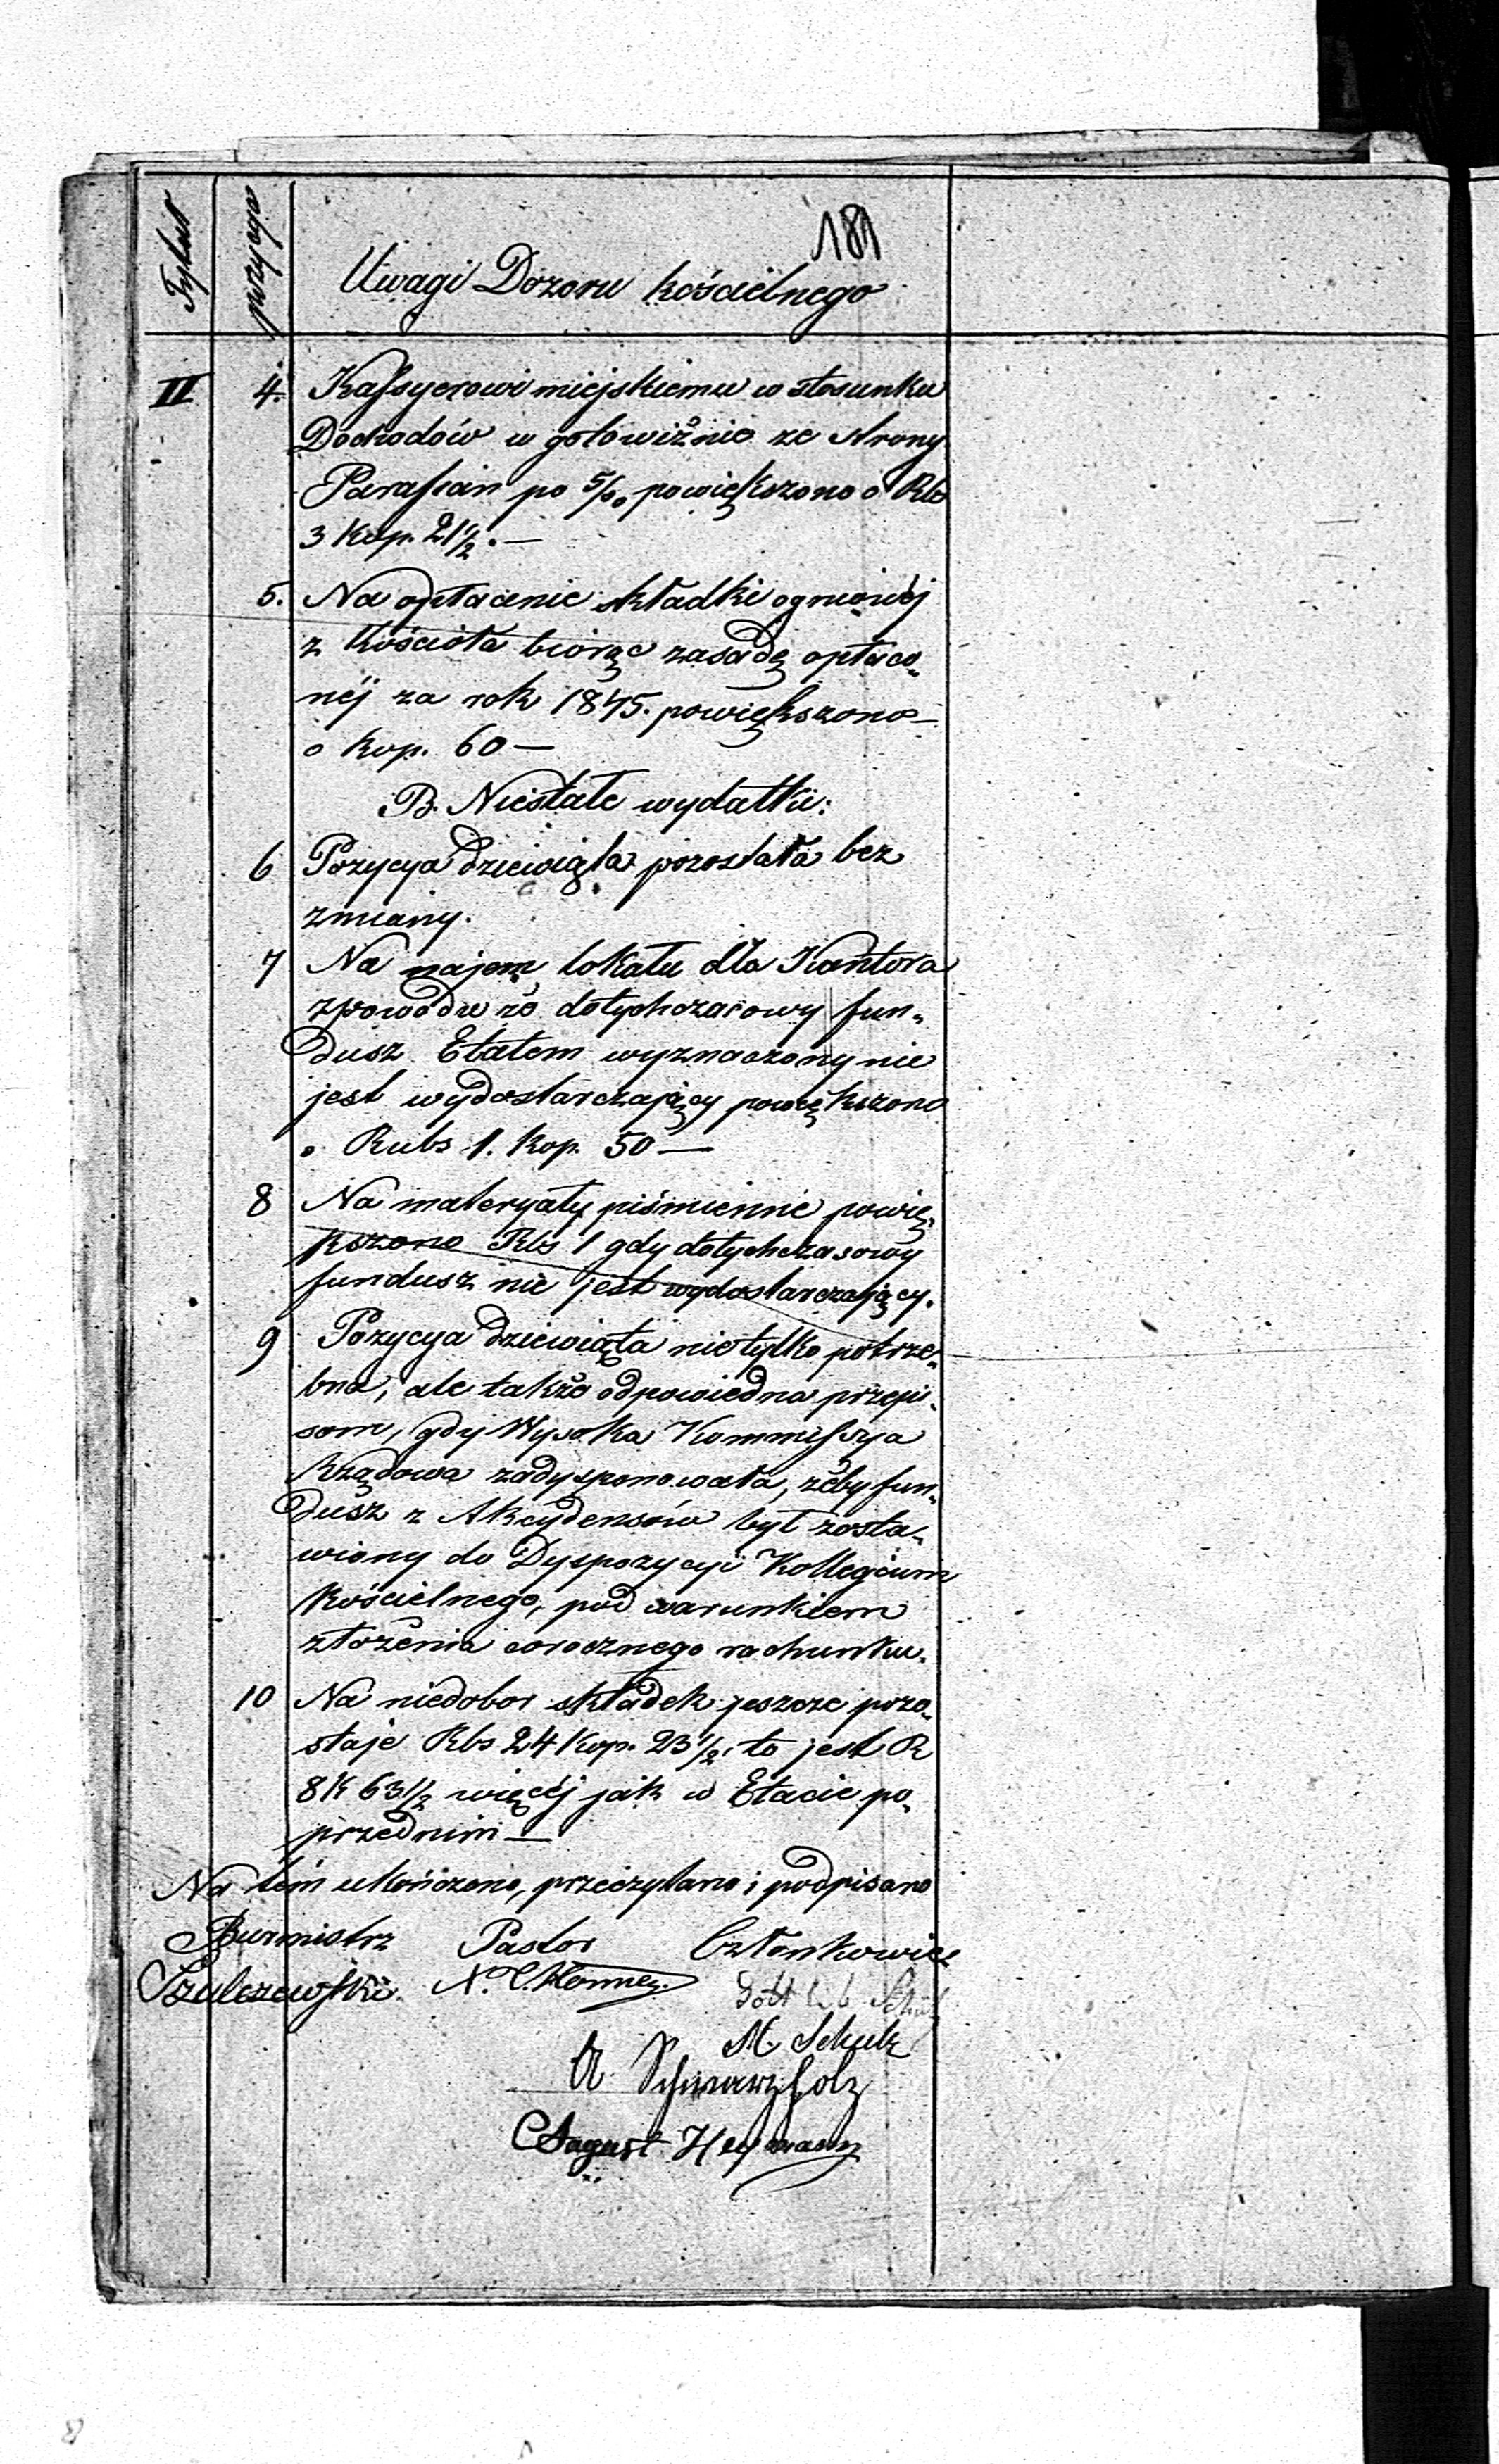 181
Tytuł pozycya Uwagi Dozoru kościelnego
II 4. Kassyerowi miejskiemu w stosunku
Dochodów w gotowiźnie ze strony
Parafian po 5/00 powiększono o Rbs
3 Kop. 21 1/2. —
5. Na opłacenie składki ogniowéj
z Kościoła biorąc zasadę opłaco„
néj za rok 1845. powiększono
o kop. 60 —
B. Niestałe wydatki:
6 Pozycya dziewiąta pozostała bez
zmiany.
7 Na najem lokalu dla Kantora
zpowodu że dotychczasowy fun„
dusz Etatem wyznaczony nie
jest wydostarczający powiększono
o Rubs 1. kop. 50 —
8 Na materyały piśmienne powię„
kszono Rbs 1 gdy dotychczasowy
fundusz nie jest wydostarczający.
9 Pozycya dziewiąta nietylko potrze„
bna, ale także odpowiedna przepi„
som, gdy Wysoka Kommissya
Rządowa zadysponowała, żeby fun„
dusz z Akcydensów był zosta„
wiony do Dyspozycyi Kollegium
Kościelnego, pod warunkiem
złożenia corocznego rachunku.
10 Na niedobor składek jeszcze pozo„
staje Rbs 24 Kop. 23 1/2, to jest R
8 K 63 1/2 więcéj jak w Etacie po„
przednim —
Na tém ukończono, przeczytano i podpisano
Burmistrz Pastor Członkowie
Szulczewski. Gottlieb
M. Schulz
A Schwarzholz
August Heymann